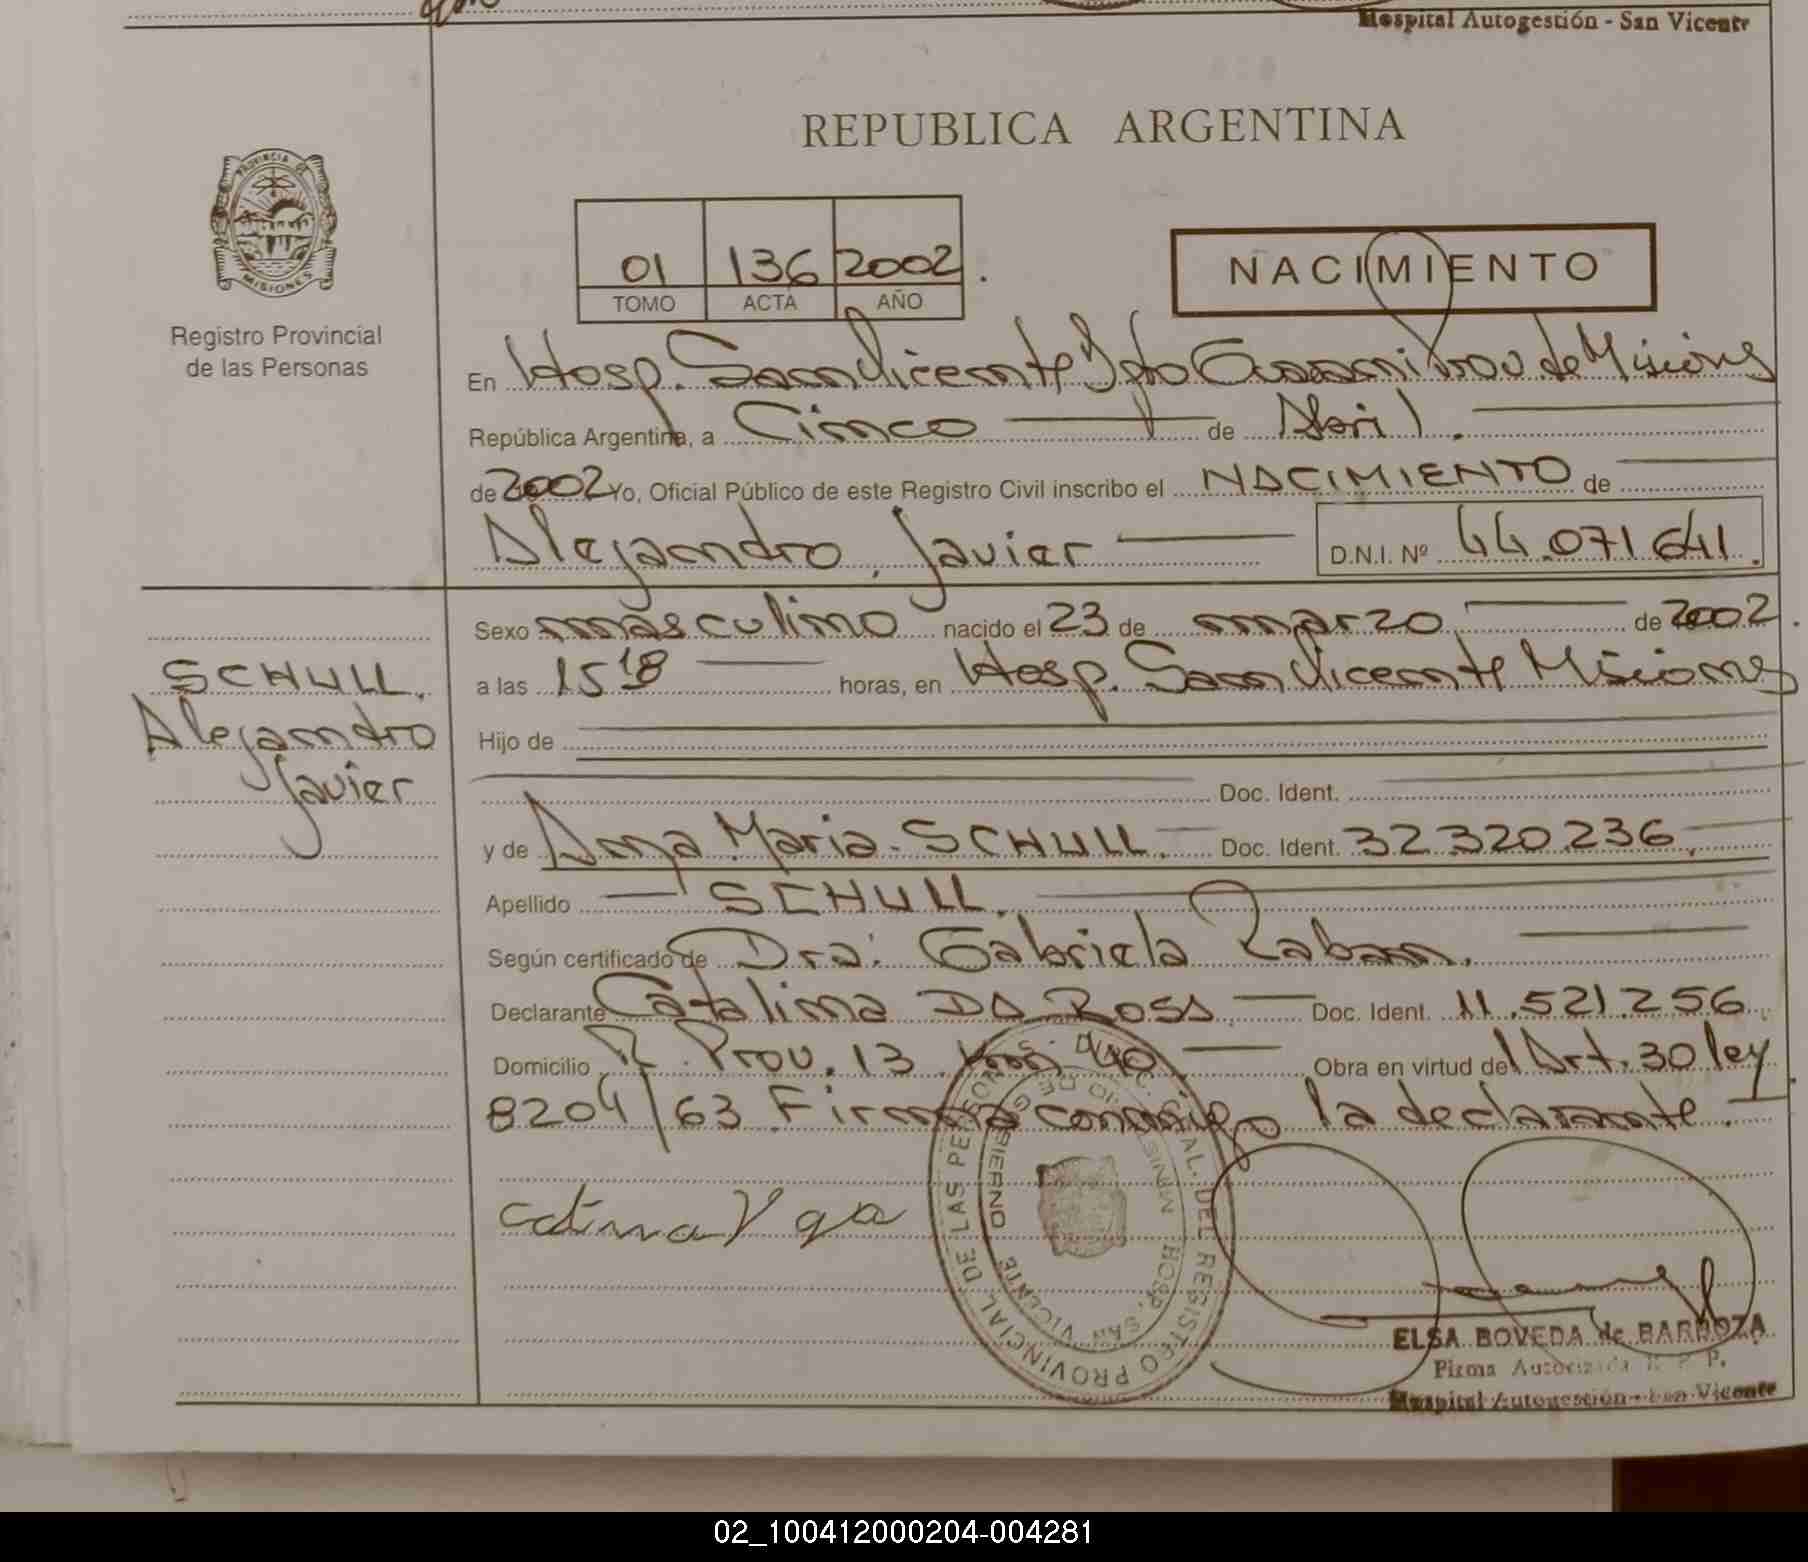 Hospital Autogestión - San Vicente
REPUBLICA ARGENTINA
PROVINCIA DE
MISIONES
Registro Provincial
de las Personas
01 136 2002.
TOMO ACTA AÑO
NACIMIENTO
En Hosp. San Vicente Dpto Guarani Prov de Misiones
República Argentina, a Cinco de Abril.
de 2002 Yo, Oficial Público de este Registro Civil inscribo el NACIMIENTO de
Alejandro Javier D.N.I. Nº 44.071641.
Sexo masculino nacido el 23 de marzo de 2002.
SCHULL.
Alejandro
Javier
a las 15 18 horas, en Hosp. San Vicente Misiones
Hijo de
Doc. Ident.
y de Ana Maria SCHULL. Doc. Ident. 32.320.236.
Apellido SCHULL.
Según certificado de Dra: Gabriela Raban.
Declarante Catalina DA ROSA. Doc. Ident. 11.521.256
Domicilio R. Prov. 13 km 40. Obra en virtud del Art. 30 ley
8204/63 Firma conmigo la declarante.
DIREC. GRAL. DEL REGISTRO PROVINCIAL DE LAS PERSONAS
HOSP. SAN VICENTE
ELSA BOVEDA de BARBOZA
Firma Autorizada R. P. P.
Hospital Autogestión - San Vicente
02_100412000204-004281